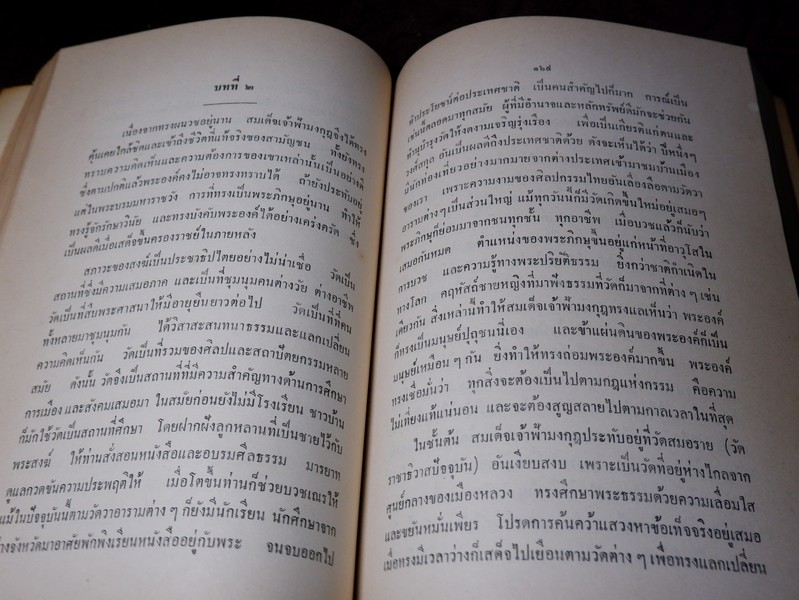 บทที่ ๒
เนื่องจากทรงผนวชอยู่นาน สมเด็จเจ้าฟ้ามงกุฎจึงได้ทรง
คุ้นเคยใกล้ชิดและเข้าถึงชีวิตที่แท้จริงของสามัญชน ทั้งยังทรง
ทราบความคิดเห็นและความต้องการของเขาเหล่านั้นเป็นอย่างดี
ซึ่งตามปกติแล้วพระองค์คงไม่อาจทรงทราบได้ ถ้ายังประทับอยู่
แต่ในพระบรมมหาราชวัง การที่ทรงเป็นพระภิกษุอยู่นาน ทำให้
ทรงรู้จักรักษาวินัย และทรงบังคับพระองค์ได้อย่างเคร่งครัด ซึ่ง
เป็นผลดีเมื่อเสด็จขึ้นครองราชย์ในภายหลัง
สภาวะของสงฆ์เป็นประชาธิปไตยอย่างไม่น่าเชื่อ วัดเป็น
สถานที่ซึ่งมีความเสมอภาค และเป็นที่ชุมนุมคนต่างวัย ต่างอาชีพ
วัดเป็นที่สืบพระศาสนาให้มีอายุยืนยาวต่อไป วัดเป็นที่ที่คน
ทั้งหลายมาชุมนุมกัน ได้วิสาสะสนทนาธรรมและแลกเปลี่ยน
ความคิดเห็นกัน วัดเป็นที่รวมของศิลปและสถาปัตยกรรมหลาย
สมัย ดังนั้น วัดจึงเป็นสถานที่ที่มีความสำคัญทางด้านการศึกษา
การเมือง และสังคมเสมอมา ในสมัยก่อนยังไม่มีโรงเรียน ชาวบ้าน
ก็มักใช้วัดเป็นสถานที่ศึกษา โดยฝากฝังลูกหลานที่เป็นชายไว้กับ
พระสงฆ์ ให้ท่านสั่งสอนหนังสือและอบรมศีลธรรม มารยาท
ดูแลกวดขันความประพฤติให้ เมื่อโตขึ้นท่านก็ช่วยบวชเณรให้
แม้ในปัจจุบันนี้ตามวัดวาอารามต่าง ๆ ก็ยังมีนักเรียน นักศึกษาจาก
ต่างจังหวัดมาอาศัยพักพิงเรียนหนังสืออยู่กับพระ จนจบออกไป
๑๒๙
ทำประโยชน์ต่อประเทศชาติ เป็นคนสำคัญไปก็มาก การณ์เป็น
เช่นนี้ตลอดมาทุกสมัย ผู้ที่มีอำนาจและหลักทรัพย์ดีมักจะช่วยกัน
ทำนุบำรุงวัดให้งดงามเจริญรุ่งเรือง เพื่อเป็นเกียรติแก่ตนและ
วงศ์สกุล อันเป็นผลดีถึงประเทศชาติด้วย ดังจะเห็นได้ว่า ปีหนึ่งๆ
มีนักท่องเที่ยวอย่างมากมายจากต่างประเทศเข้ามาชมบ้านเมือง
ของเรา เพราะความงามของศิลปกรรมไทยอันเลื่องลือตามวัดวา
อารามต่างๆ เป็นส่วนใหญ่ แม้ทุกวันนี้ก็มีวัดเกิดขึ้นใหม่อยู่เสมอๆ
พระภิกษุก็ย่อมมาจากชนทุกชั้น ทุกอาชีพ เมื่อบวชแล้วก็นับว่า
เสมอกันหมด ตำแหน่งของพระภิกษุขึ้นอยู่แก่หน้าที่อาวุโสใน
การบวช และความรู้ทางพระปริยัติธรรม ยิ่งกว่าชาติกำเนิดใน
ทางโลก คฤหัสถ์ชายหญิงที่มาฟังธรรมที่วัดก็มาจากที่ต่างๆ เช่น
เดียวกัน สิ่งเหล่านี้ทำให้สมเด็จเจ้าฟ้ามงกุฎทรงแลเห็นว่า พระองค์
ก็ทรงเป็นมนุษย์ปุถุชนนี่เอง และข้าแผ่นดินของพระองค์ก็เป็น
มนุษย์เหมือน ๆ กัน ยิ่งทำให้ทรงถ่อมพระองค์มากขึ้น พระองค์
ทรงเชื่อมั่นว่า ทุกสิ่งจะต้องเป็นไปตามกฎแห่งกรรม คือความ
ไม่เที่ยงแท้แน่นอน และจะต้องสูญสลายไปตามกาลเวลาในที่สุด
ในชั้นต้น สมเด็จเจ้าฟ้ามงกุฎประทับอยู่ที่วัดสมอราย (วัด
ราชาธิวาสปัจจุบัน) อันเงียบสงบ เพราะเป็นวัดที่อยู่ห่างไกลจาก
ศูนย์กลางของเมืองหลวง ทรงศึกษาพระธรรมด้วยความเลื่อมใส
และขยันหมั่นเพียร โปรดการค้นคว้าแสวงหาข้อเท็จจริงอยู่เสมอ
เมื่อทรงมีเวลาว่างก็เสด็จไปเยือนตามวัดต่าง ๆ เพื่อทรงแลกเปลี่ยน